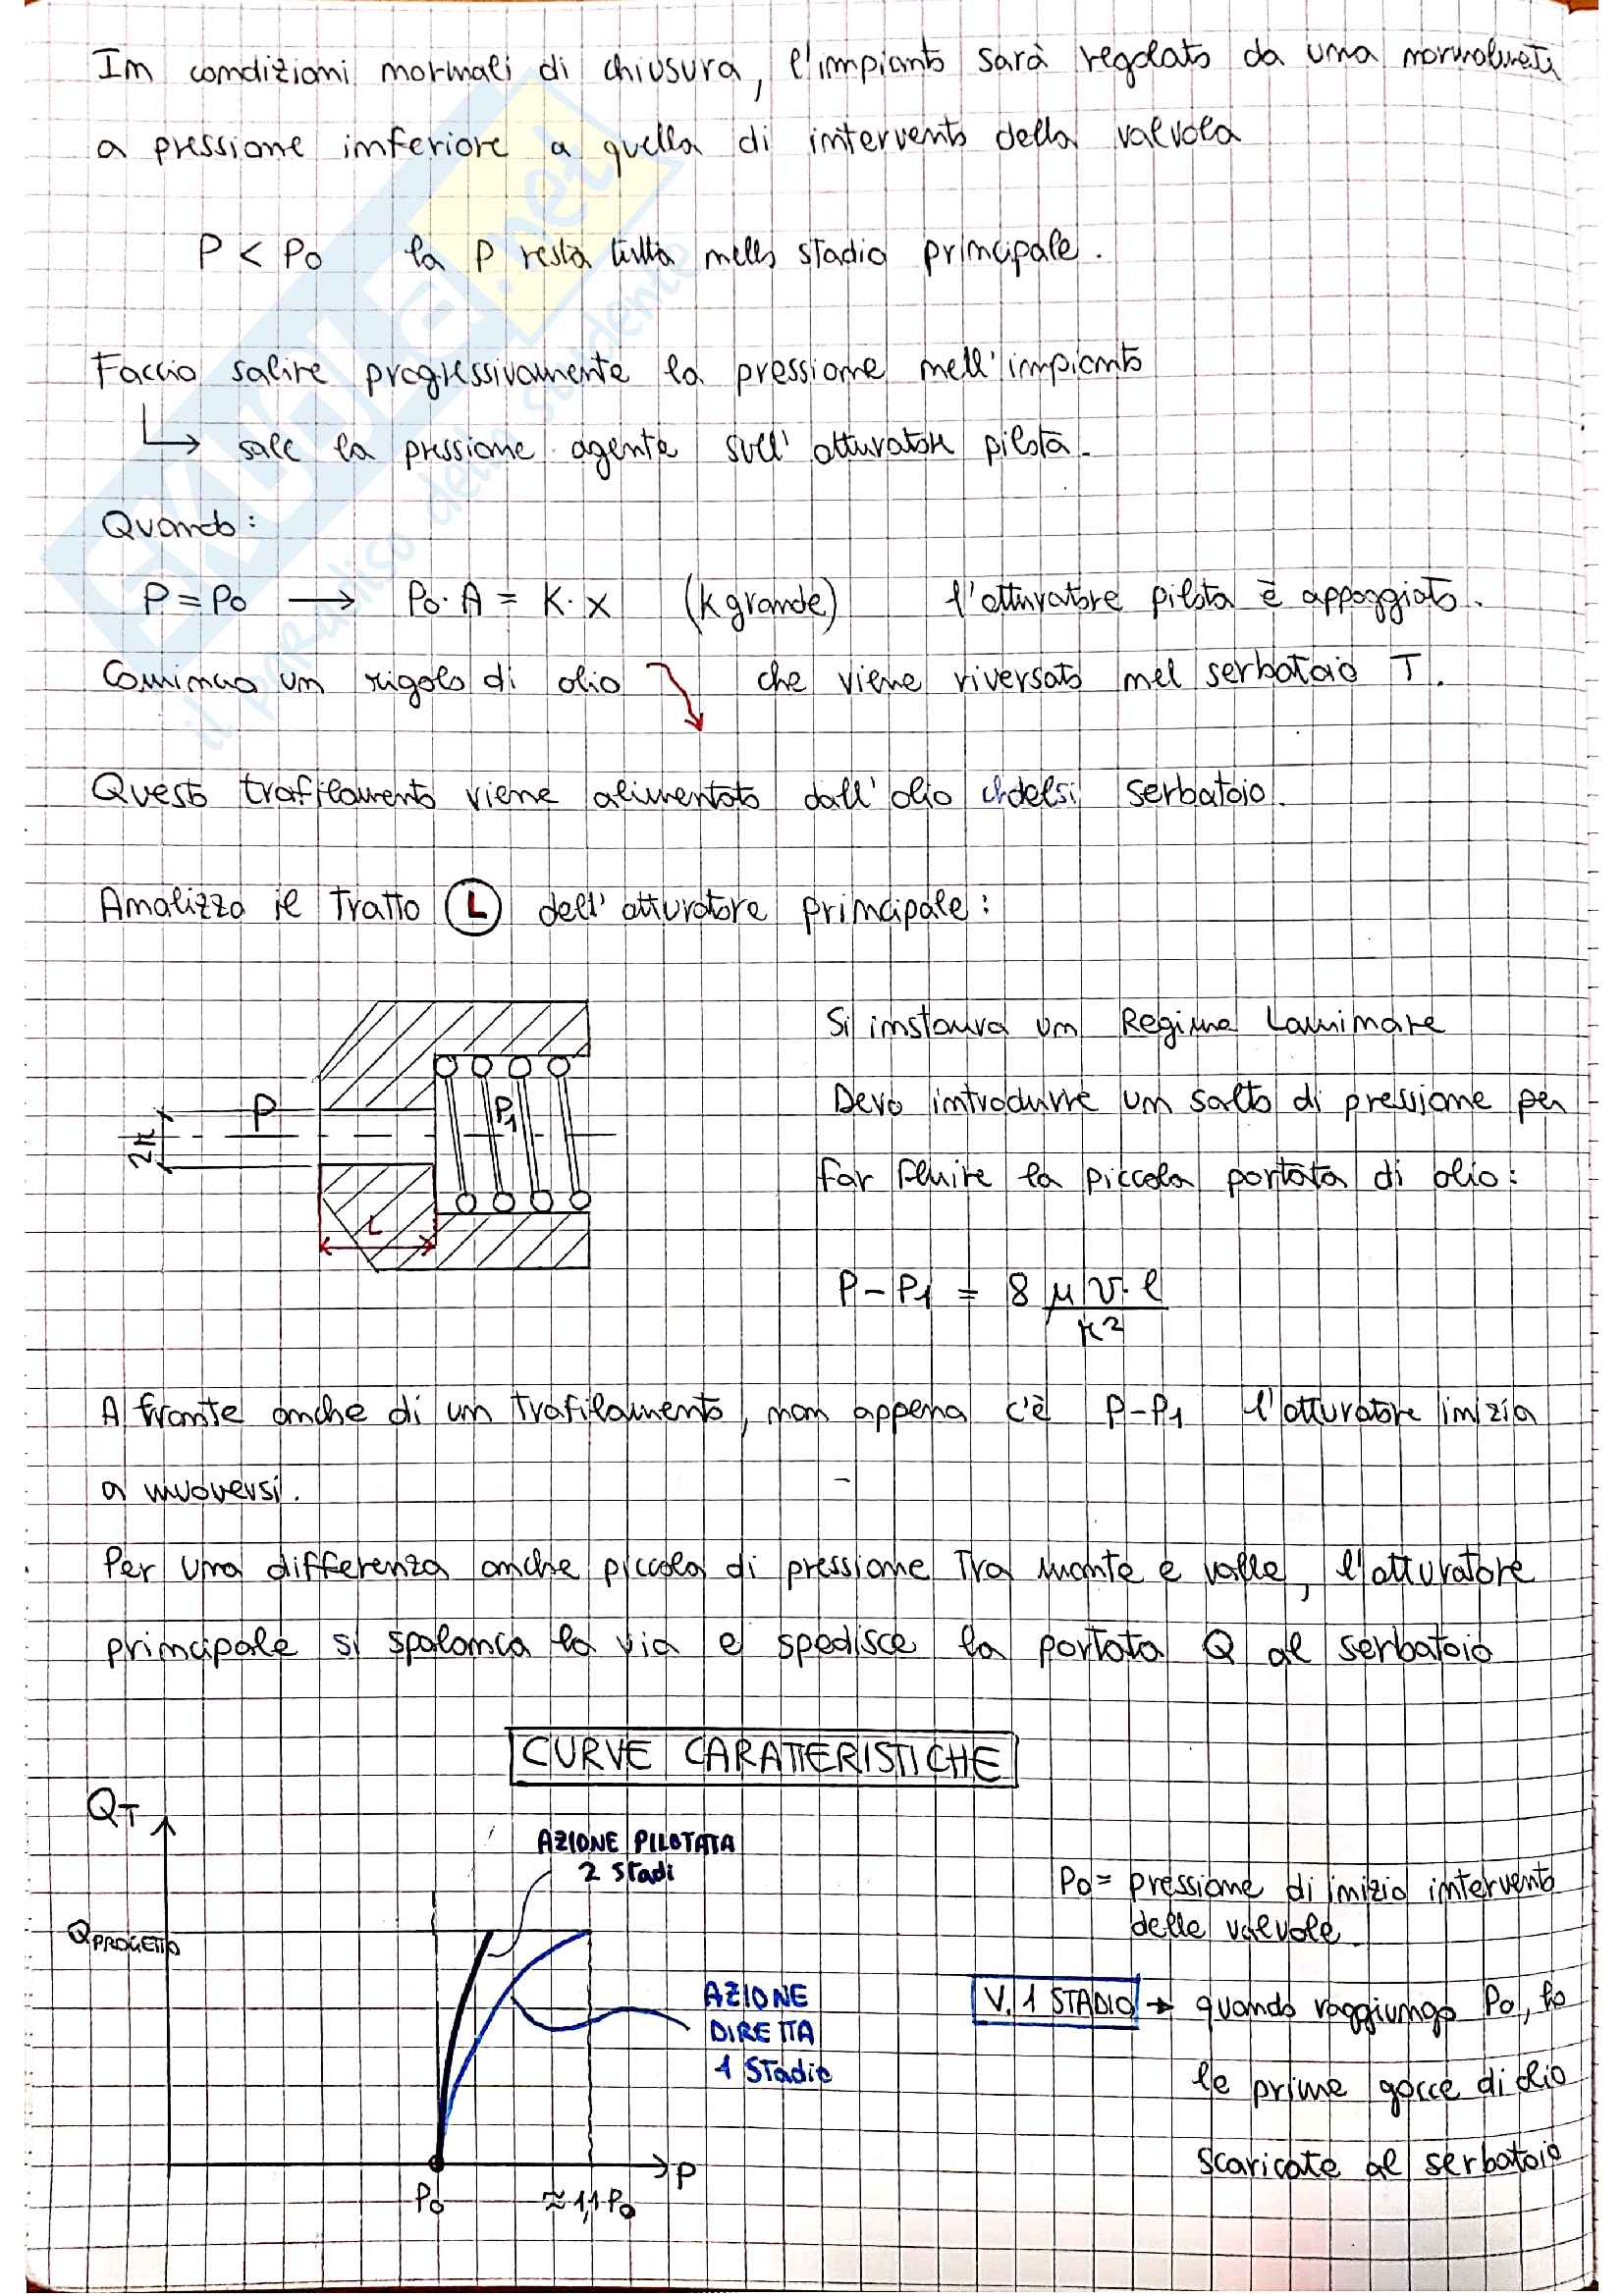 In condizioni normali di chiusura, l'impianto sarà regolato da una
a pressione inferiore a quella di intervento della valvola
P < P0 la P resta tutta nello stadio principale.
Faccio salire progressivamente la pressione nell'impianto
sale la pressione agente sull'otturatore pilota.
Quando:
P = P0 → P0 · A = K · x (K grande) l'otturatore pilota è appoggiato.
Comincia un rigolo di olio che viene riversato nel serbatoio T.
Questo trafilamento viene alimentato dall'olio serbatoio.
Analizzo il tratto L dell'otturatore principale:
Si instaura un Regime Laminare
Devo introdurre un salto di pressione per
far fluire la piccola portata di olio:
P
P1
2r
L
P - P1 = 8 μ v · l / r²
A fronte anche di un trafilamento, non appena c'è P-P1 l'otturatore inizia
a muoversi.
Per una differenza anche piccola di pressione tra monte e valle, l'otturatore
principale si spalanca la via e spedisce la portata Q al serbatoio
CURVE CARATTERISTICHE
QT
AZIONE PILOTATA
2 Stadi
QPROGETTO
AZIONE
DIRETTA
1 Stadio
P0
≈ 1,1 P0
P
P0 = pressione di inizio intervento
delle valvole.
V. 1 STADIO → quando raggiungo P0, ho
le prime gocce di olio
scaricate al serbatoio
SKUOLA.net
il paradiso dello studente